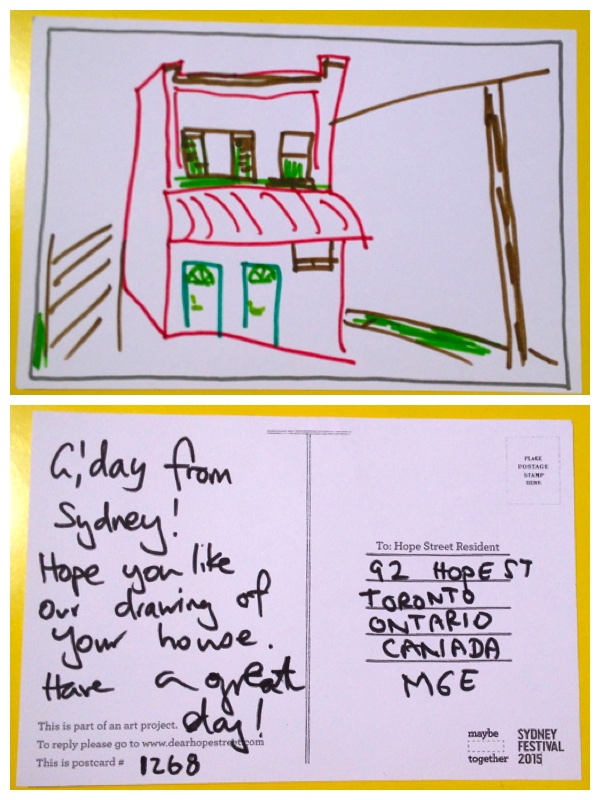 G'day from
Sydney!
Hope you like
our drawing of
your house.
Have a great
day!
This is part of an art project.
To reply please go to www.dearhopestreet.com
This is postcard # 1268
PLACE
POSTAGE
STAMP
HERE
To: Hope Street Resident
92 HOPE ST
TORONTO
ONTARIO
CANADA
M6E
maybe
together
SYDNEY
FESTIVAL
2015